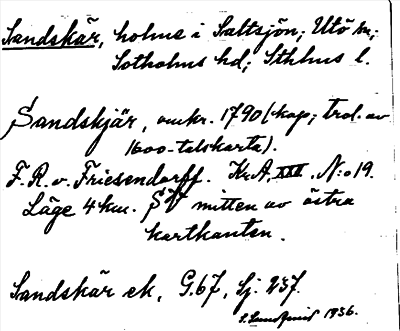 Sandskär, holme i Saltsjön; Utö sn;
Sotholms hd; Sthlms l.
Sandskjär, omkr. 1790 (kop; trol. av
1600-talskarta).
F. R. v. Friesendorff. Kr.A. XXII. N:o 19.
Läge 4 km. SV mitten av östra
kartkanten.
Sandskär ek, G.67, Sj. 237.
1936.